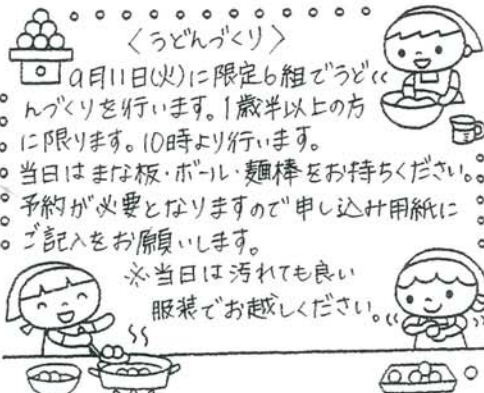 〈うどんづくり〉
9月11日(火)に限定6組でうど
んづくりを行います。1歳半以上の方
に限ります。10時より行います。
当日はまな板・ボール・麺棒をお持ちください。
予約が必要となりますので申し込み用紙に
ご記入をお願いします。
※当日は汚れても良い
服装でお越しください。